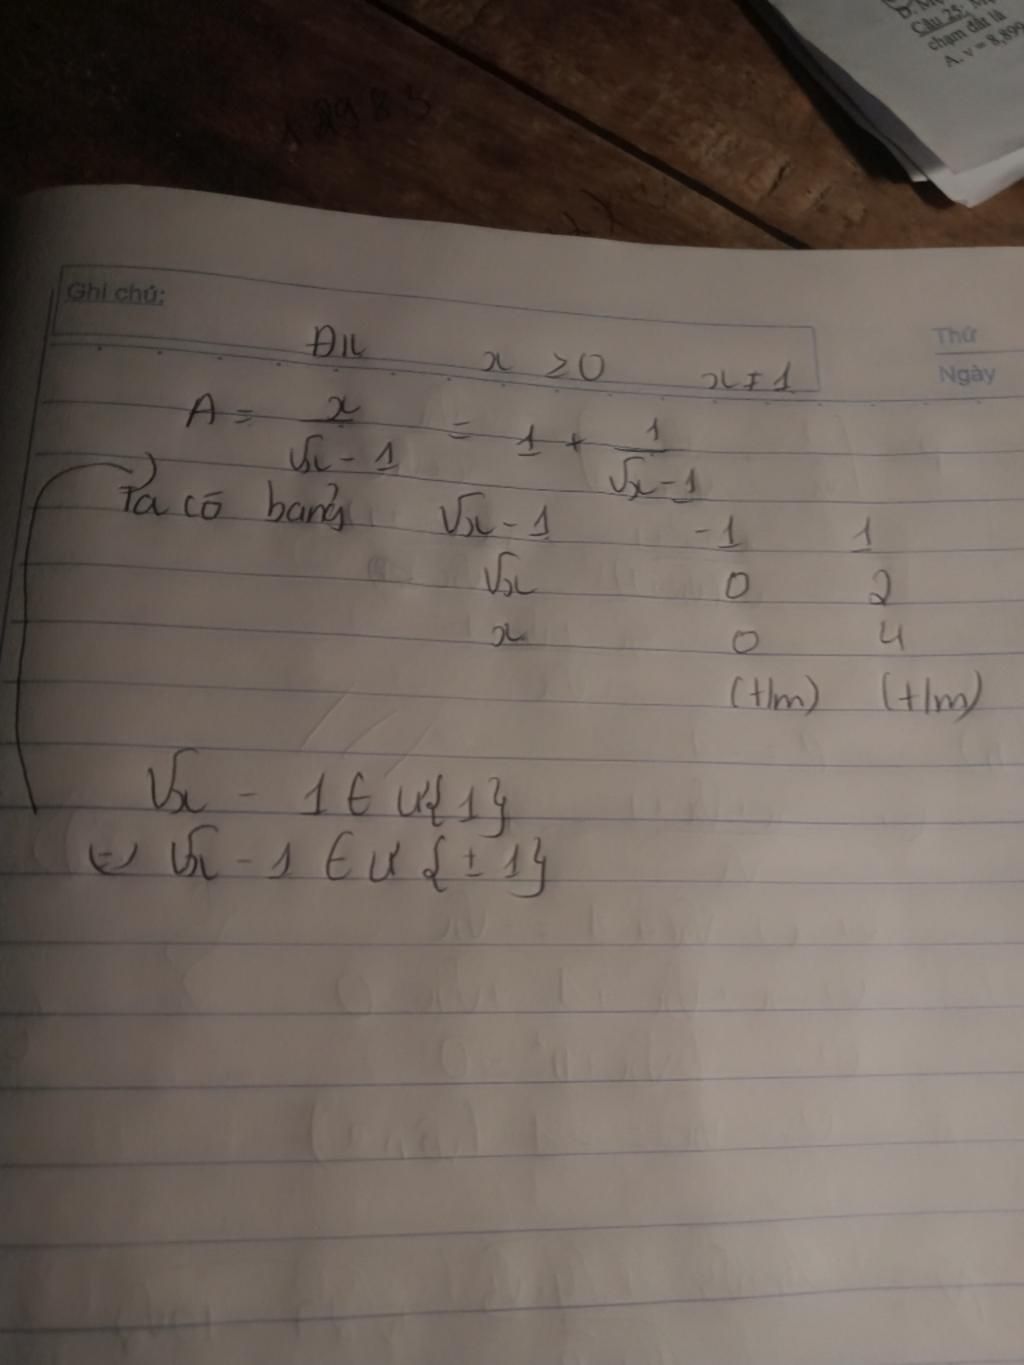 D. Mộ
Câu 25: Mộ
chạm đất là
A. v = 8,899
Ghi chú:
Thứ
Ngày
ĐK x ≥0 x ≠ 1
A = x/(√x - 1) = 1 + 1/(√x - 1)
Ta có bảng √x - 1 -1 1
√x 0 2
x 0 4
(t/m) (t/m)
√x - 1 ∈ Ư{1}
⇔ √x - 1 ∈ Ư {± 1}